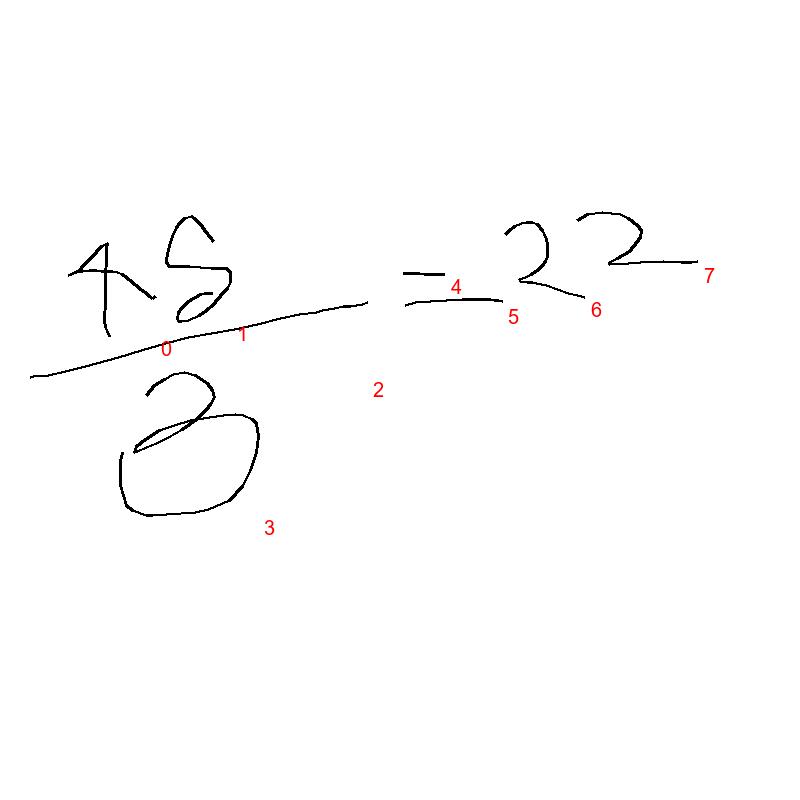 45
―
3
= 22
0 1 2 3 4 5 6 7